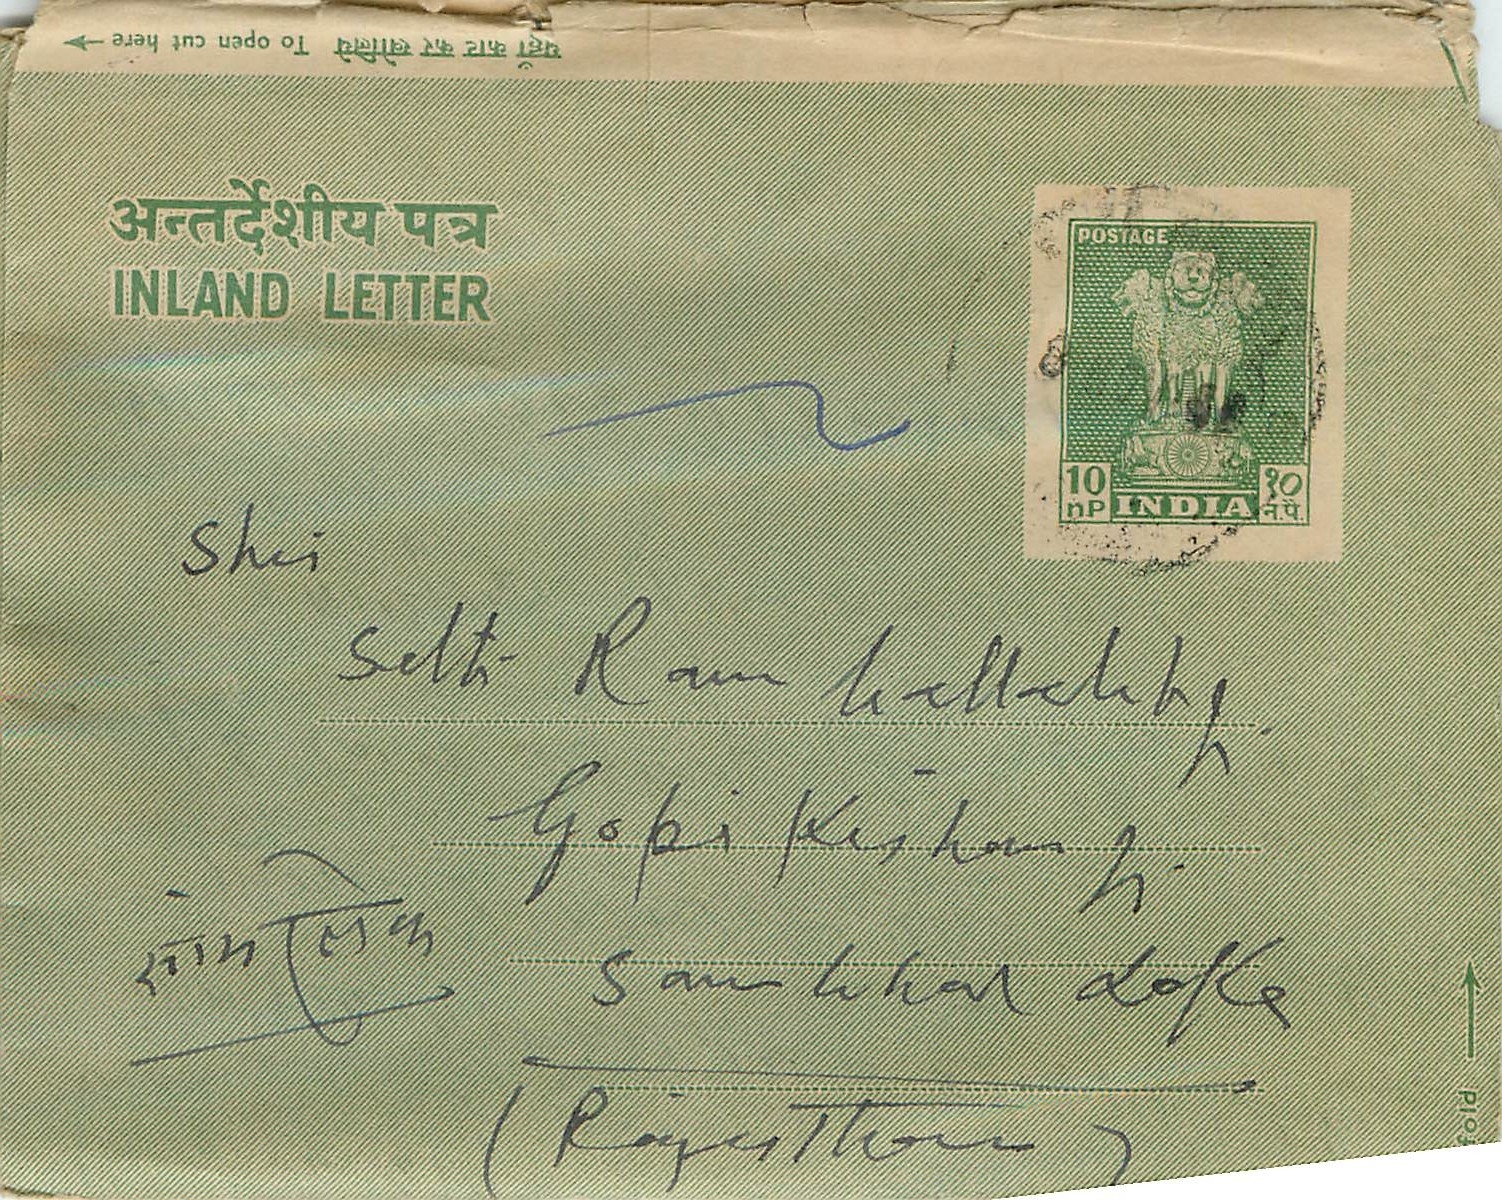 यहाँ काट कर खोलिये To open cut here
अन्तर्देशीय पत्र
INLAND LETTER
POSTAGE
10 nP INDIA १० न.पै.
Shri
Seth Ram
Gopi Kishan Ji.
Sambhar Lake
(Rajasthan)
fold